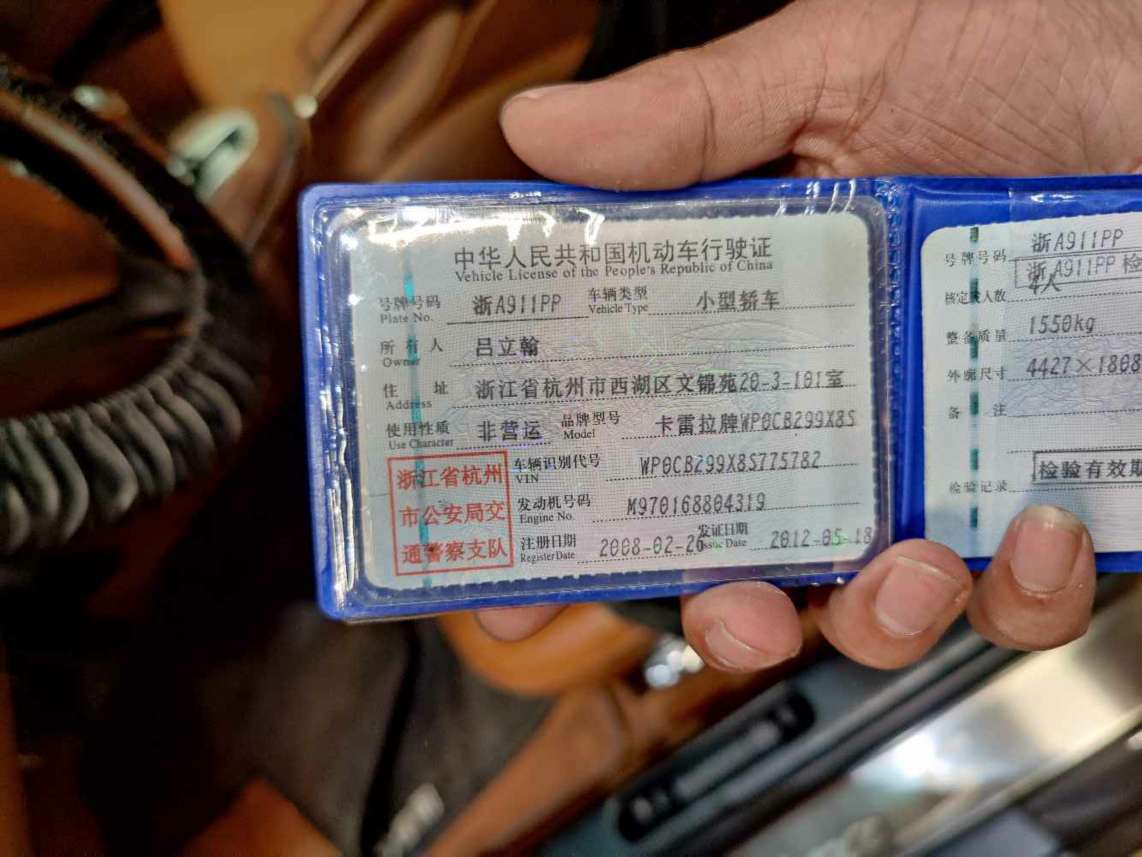 中华人民共和国机动车行驶证
Vehicle License of the People's Republic of China
号牌号码 浙A911PP 车辆类型 小型轿车
Plate No. Vehicle Type
所有人 吕立翰
Owner
住址 浙江省杭州市西湖区文锦苑20-3-101室
Address
使用性质 非营运 品牌型号 卡雷拉牌WP0CB299X8S
Use Character Model
浙江省杭州
市公安局交
通警察支队
车辆识别代号 WP0CB299X8S775782
VIN
发动机号码 M970168804319
Engine No.
注册日期 2008-02-26 发证日期 2012-05-18
Register Date Issue Date
号牌号码 浙A911PP
浙A911PP 检
核定载人数 4人
整备质量 1550kg
外廓尺寸 4427×1808
备注
检验记录 检验有效期